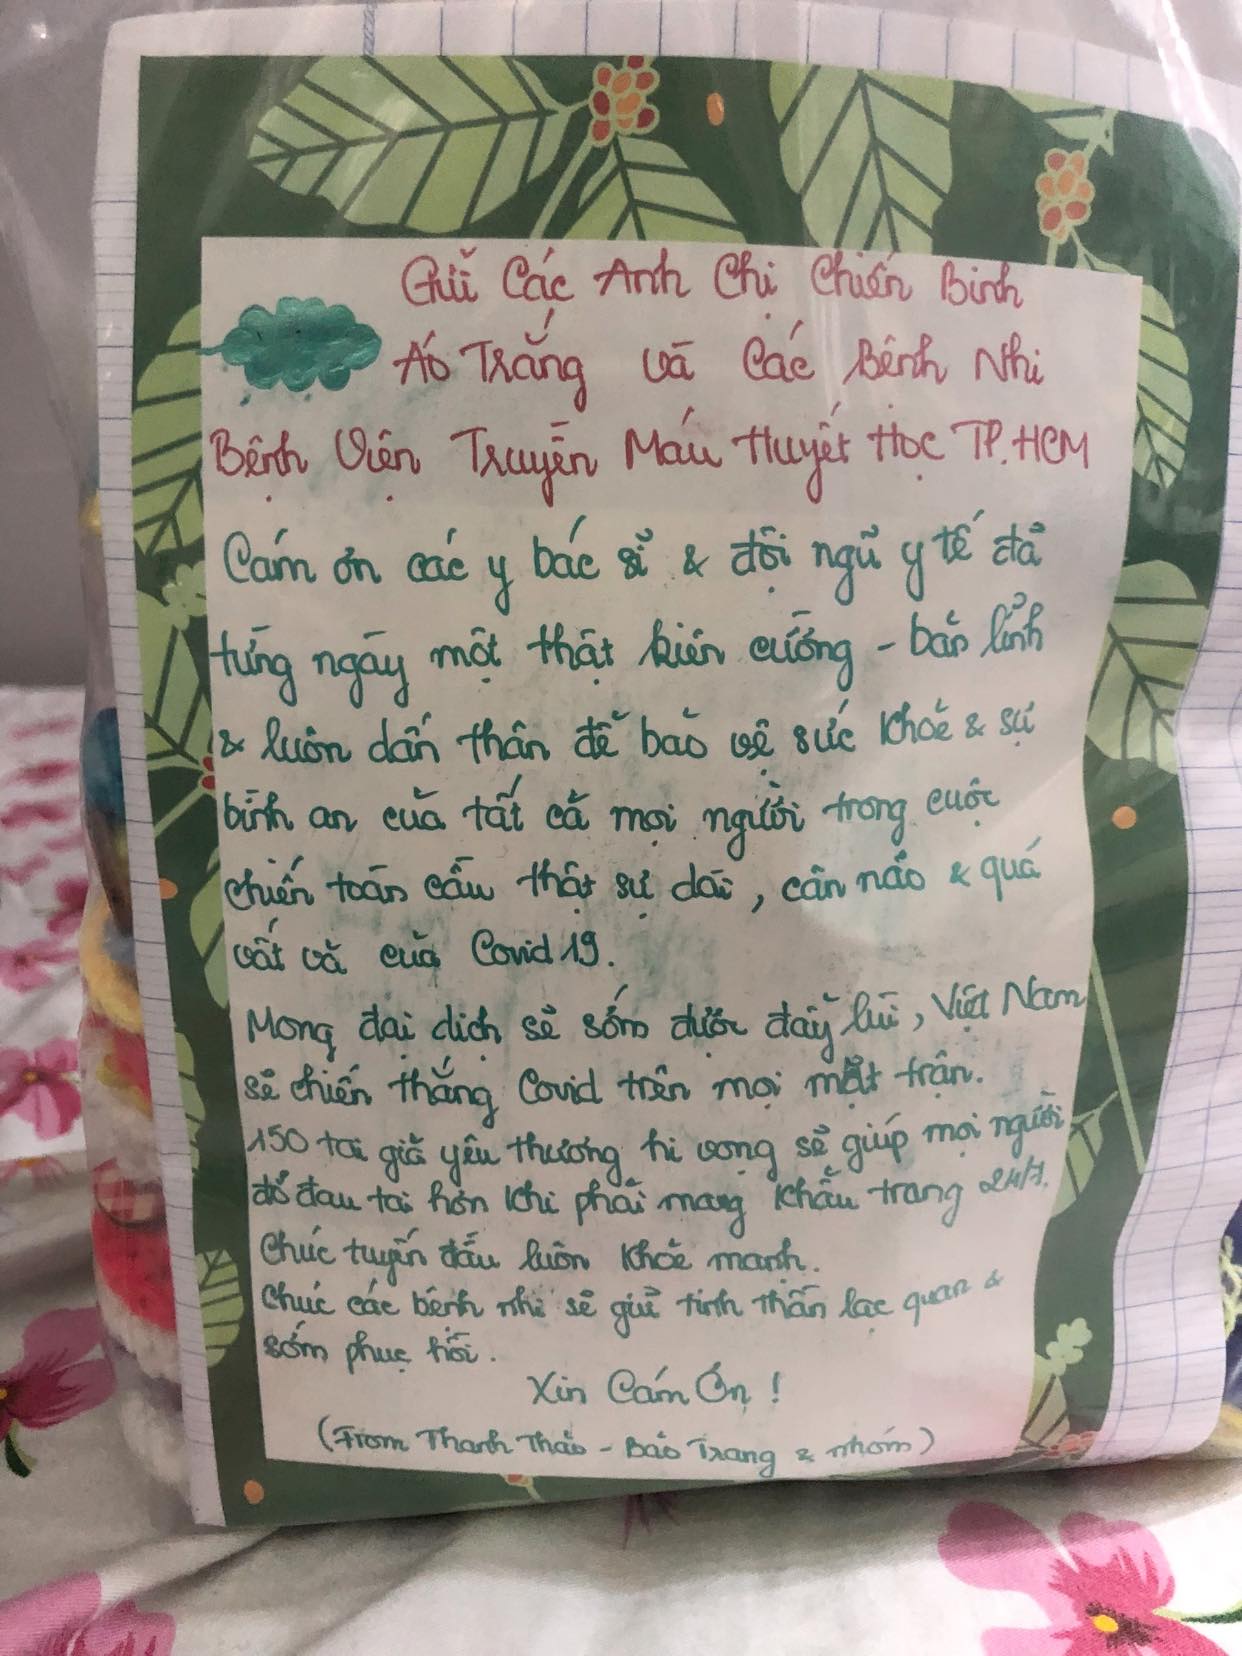 Gửi Các Anh Chị Chiến Binh
Áo Trắng và Các Bệnh Nhi
Bệnh Viện Truyền Máu Huyết Học TP.HCM
Cám ơn các y bác sĩ & đội ngũ y tế đã
từng ngày một thật kiên cường - bản lĩnh
& luôn dấn thân để bảo vệ sức khỏe & sự
bình an của tất cả mọi người trong cuộc
chiến toàn cầu thật sự dài, cân não & quá
vất vả của Covid 19.
Mong đại dịch sẽ sớm được đẩy lùi, Việt Nam
sẽ chiến thắng Covid trên mọi mặt trận.
150 tai giả yêu thương hi vọng sẽ giúp mọi người
đỡ đau tai hơn khi phải mang khẩu trang 24/7.
Chúc tuyến đầu luôn khỏe mạnh.
Chúc các bệnh nhi sẽ giữ tinh thần lạc quan &
sớm phục hồi.
Xin Cám Ơn !
(From Thanh Thảo - Bảo Trang & nhóm)